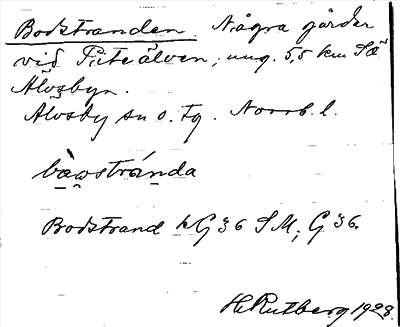 Bodstranden. Några gårdar
vid Piteälven, ung. 5,5 km SÖ
Älvsbyn.
Älvsby sn o. tg. Norrb. l.
bὰwstránda
Bodstrand hG 36 SM; G 36.
H. Rutberg 1928.